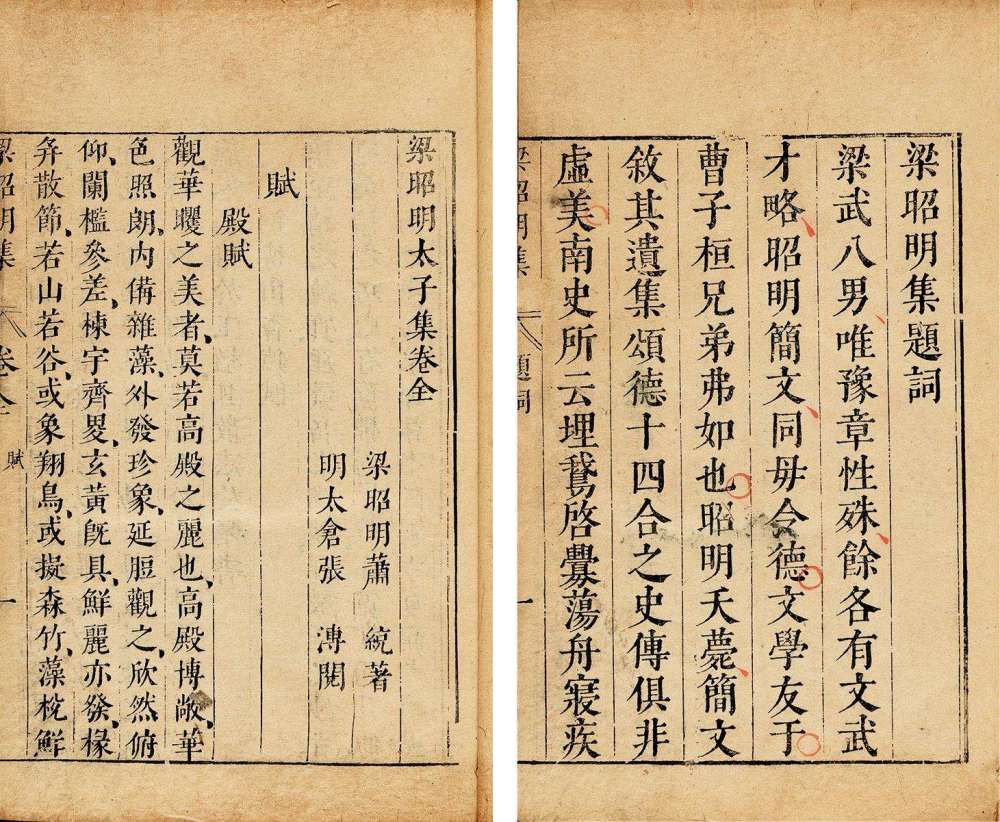 梁昭明集題詞
梁武八男唯豫章性殊餘各有文武
才略昭明簡文同毋令德文學友于
曹子桓兄弟弗如也昭明夭薨簡文
敘其遺集頌德十四合之史傳俱非
虛美南史所云埋鵞啓釁蕩舟寢疾
梁昭明集
題詞
一
梁昭明太子集卷全
梁昭明蕭 統著
明太倉張 溥閱
賦
殿賦
觀華㬬之美者莫若高殿之麗也高殿博敞華
色照朗內俻雜藻外發珍象延脰觀之欣然俯
仰闌檻參差棟宇齊畟玄黃旣具鮮麗亦發椽
弁散節若山若谷或象翔鳥或擬森竹藻梲鮮
梁昭明集
卷全
賦
一